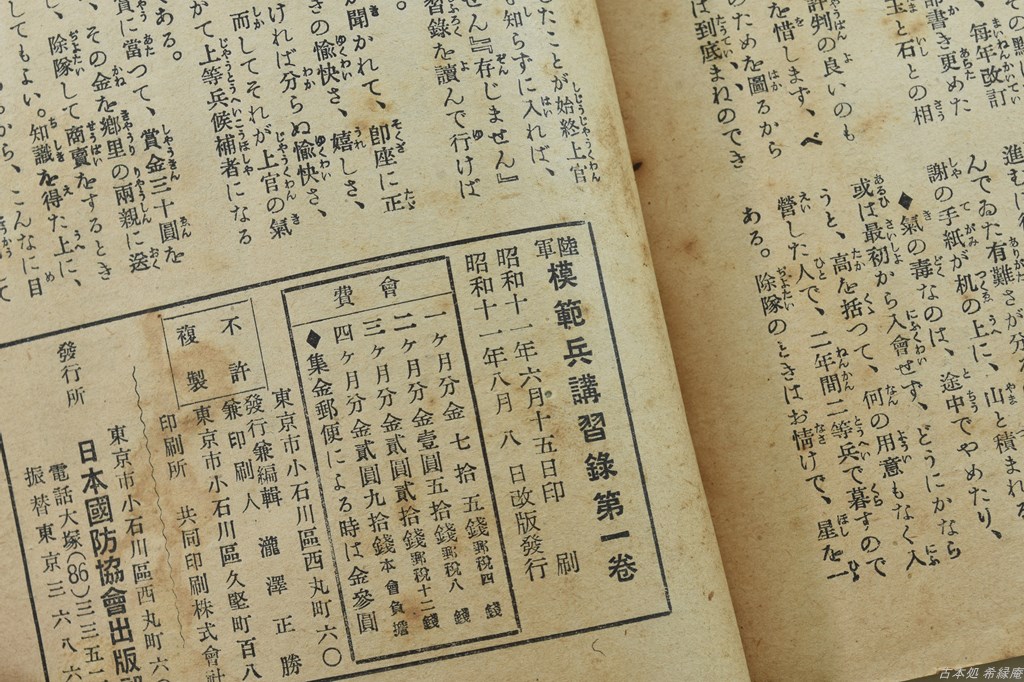 その點
部書き更めた
、每年改訂
玉と石との相
評判の良いのも
を惜します、べ
のためを圖るから
は到底まねのでき
んでゐた有難さが分
謝の手紙が机の上に、山と積まれる
◆氣の毒なのは、途中でやめたり、
或は最初から入會せず、どうにかなら
うと、高を括つて、何の用意もなく入
營した人で、二年間二等兵で暮すので
ある。除隊のときはお情けで、星を一
したことが始終上官
も知らずに入れば、
せん』『存じません』
習錄を讀んで行けば
。
聞かれて、卽座に正
きの愉快さ、嬉しさ、
ければ分らぬ愉快さ、
而してそれが上官の氣
かて上等兵候補者になる
である。
賞に當つて、賞金三十圓を
、その金を鄕里の兩親に送
、除隊して商賣をするとき
してもよい。知識を得た上に、
から、こんなに目
陸軍模範兵講習錄第一卷
昭和十一年六月十五日印刷
昭和十一年八月八日改版發行
會費
一ヶ月分金七拾五錢郵稅四錢
二ヶ月分金壹圓五拾錢郵稅八錢
三ヶ月分金貳圓貳拾錢郵稅十二錢
四ヶ月分金貳圓九拾錢本會負擔
◆集金郵便による時は金參圓
不許複製
東京市小石川區西丸町六〇
發行兼編輯兼印刷人 瀧澤正勝
東京市小石川區久堅町百八
印刷所 共同印刷株式會社
發行所
東京市小石川區西丸町六〇
日本國防協會出版部
電話大塚(86)三三五一
振替東京三六八六
古本処 希縁庵